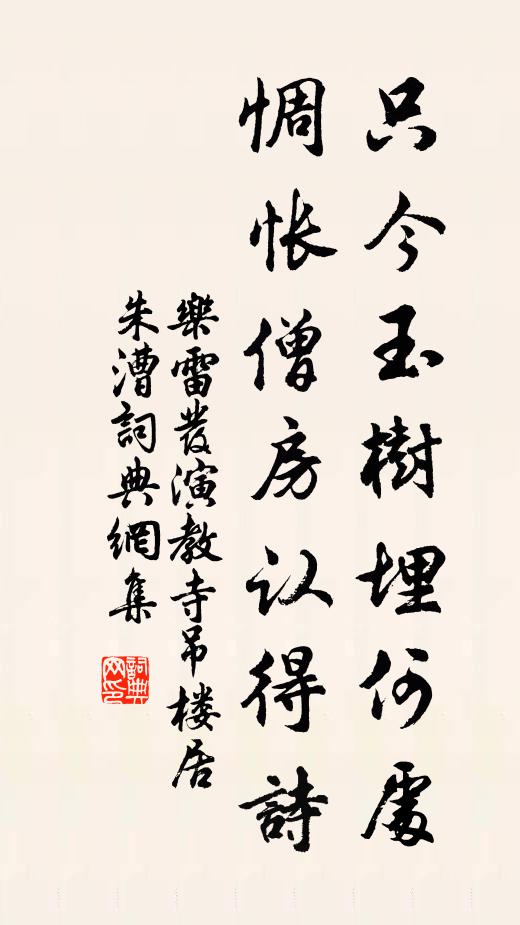 只今玉樹埋何處
惆怅僧房认得詩
樂雷發演教寺吊楼居
朱漕詞典網集
詞典网印